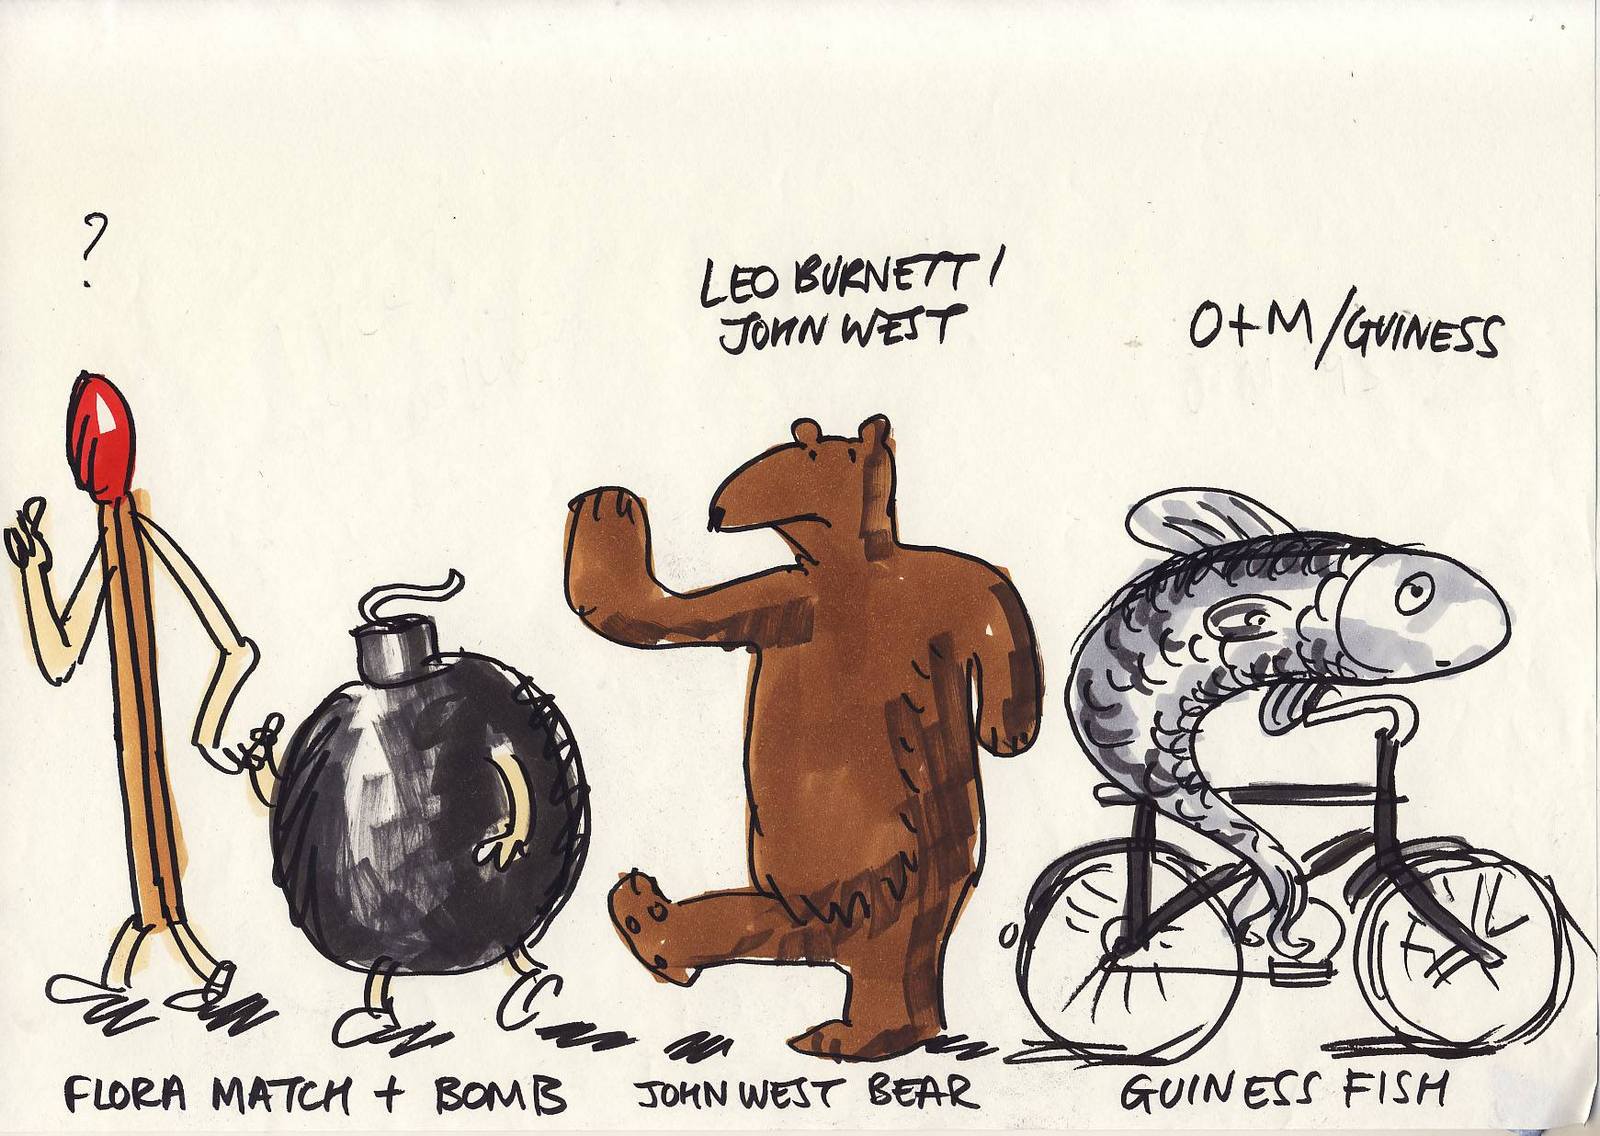 ?
LEO BURNETT/
JOHN WEST
O+M/GUINESS
FLORA MATCH + BOMB
JOHN WEST BEAR
GUINESS FISH